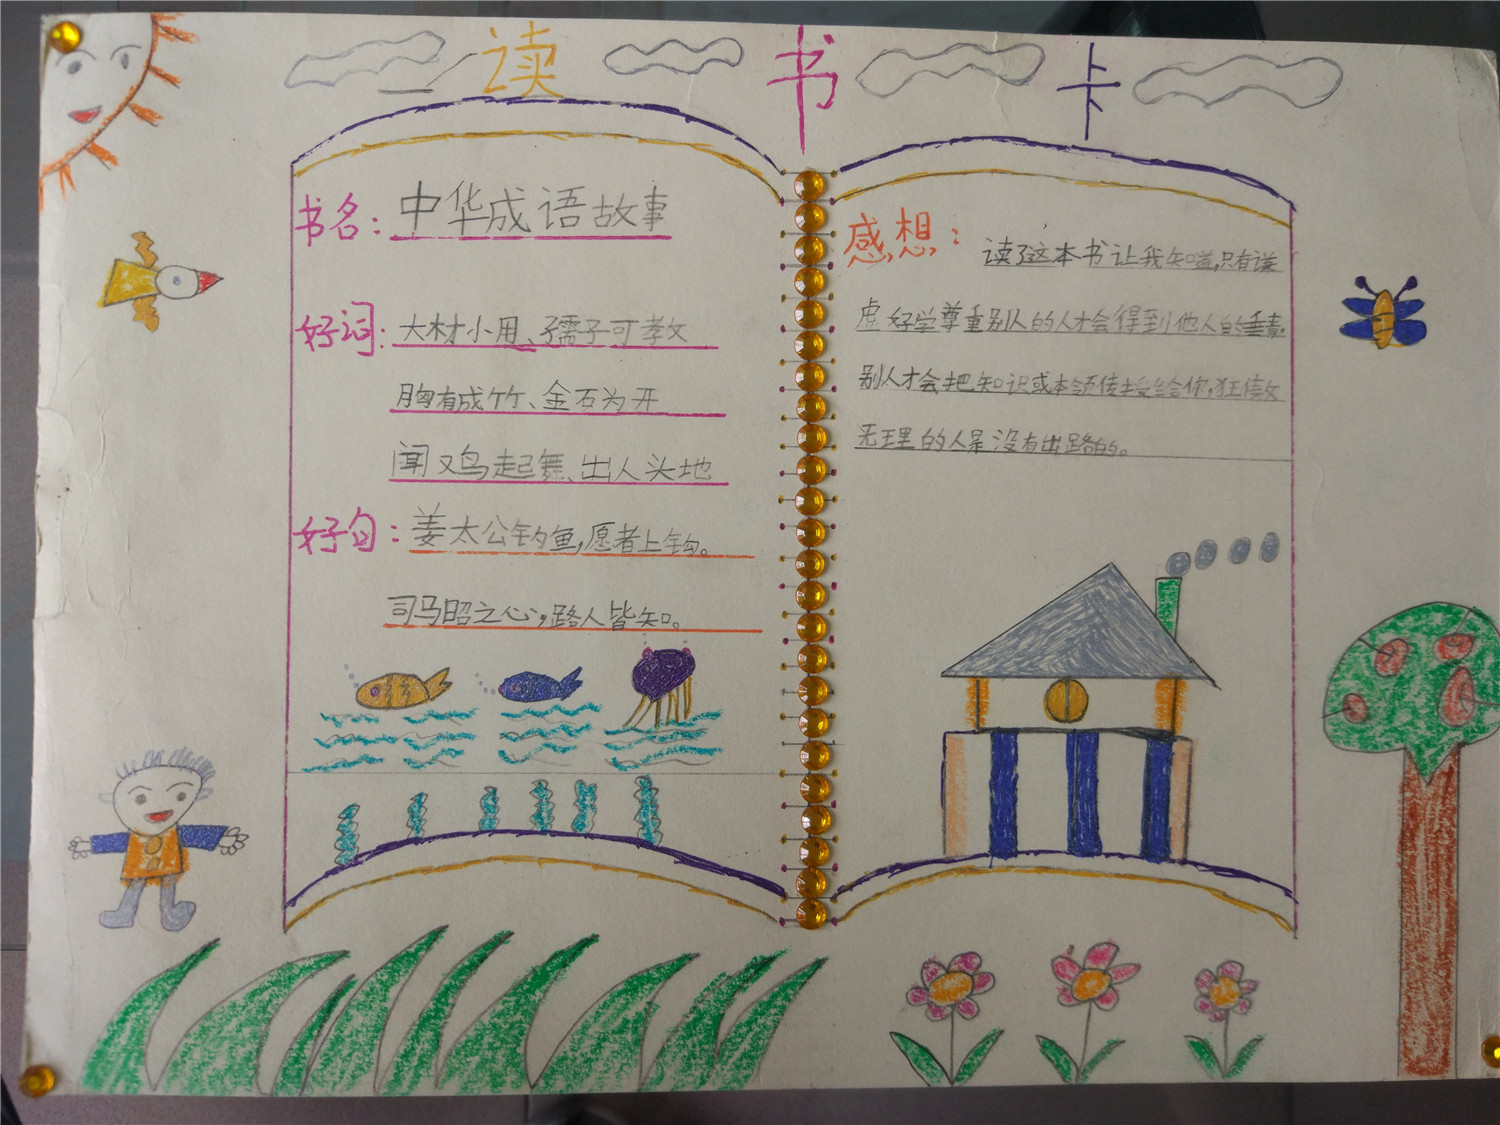 读书卡
书名：中华成语故事
好词：大材小用、孺子可教
胸有成竹、金石为开
闻鸡起舞、出人头地
好句：姜太公钓鱼，愿者上钩。
司马昭之心，路人皆知。
感想：读了这本书让我知道，只有谦
虚好学尊重别人的人才会得到他人的垂青。
别人才会把知识或本领传授给你，狂傲
无理的人是没有出路的。